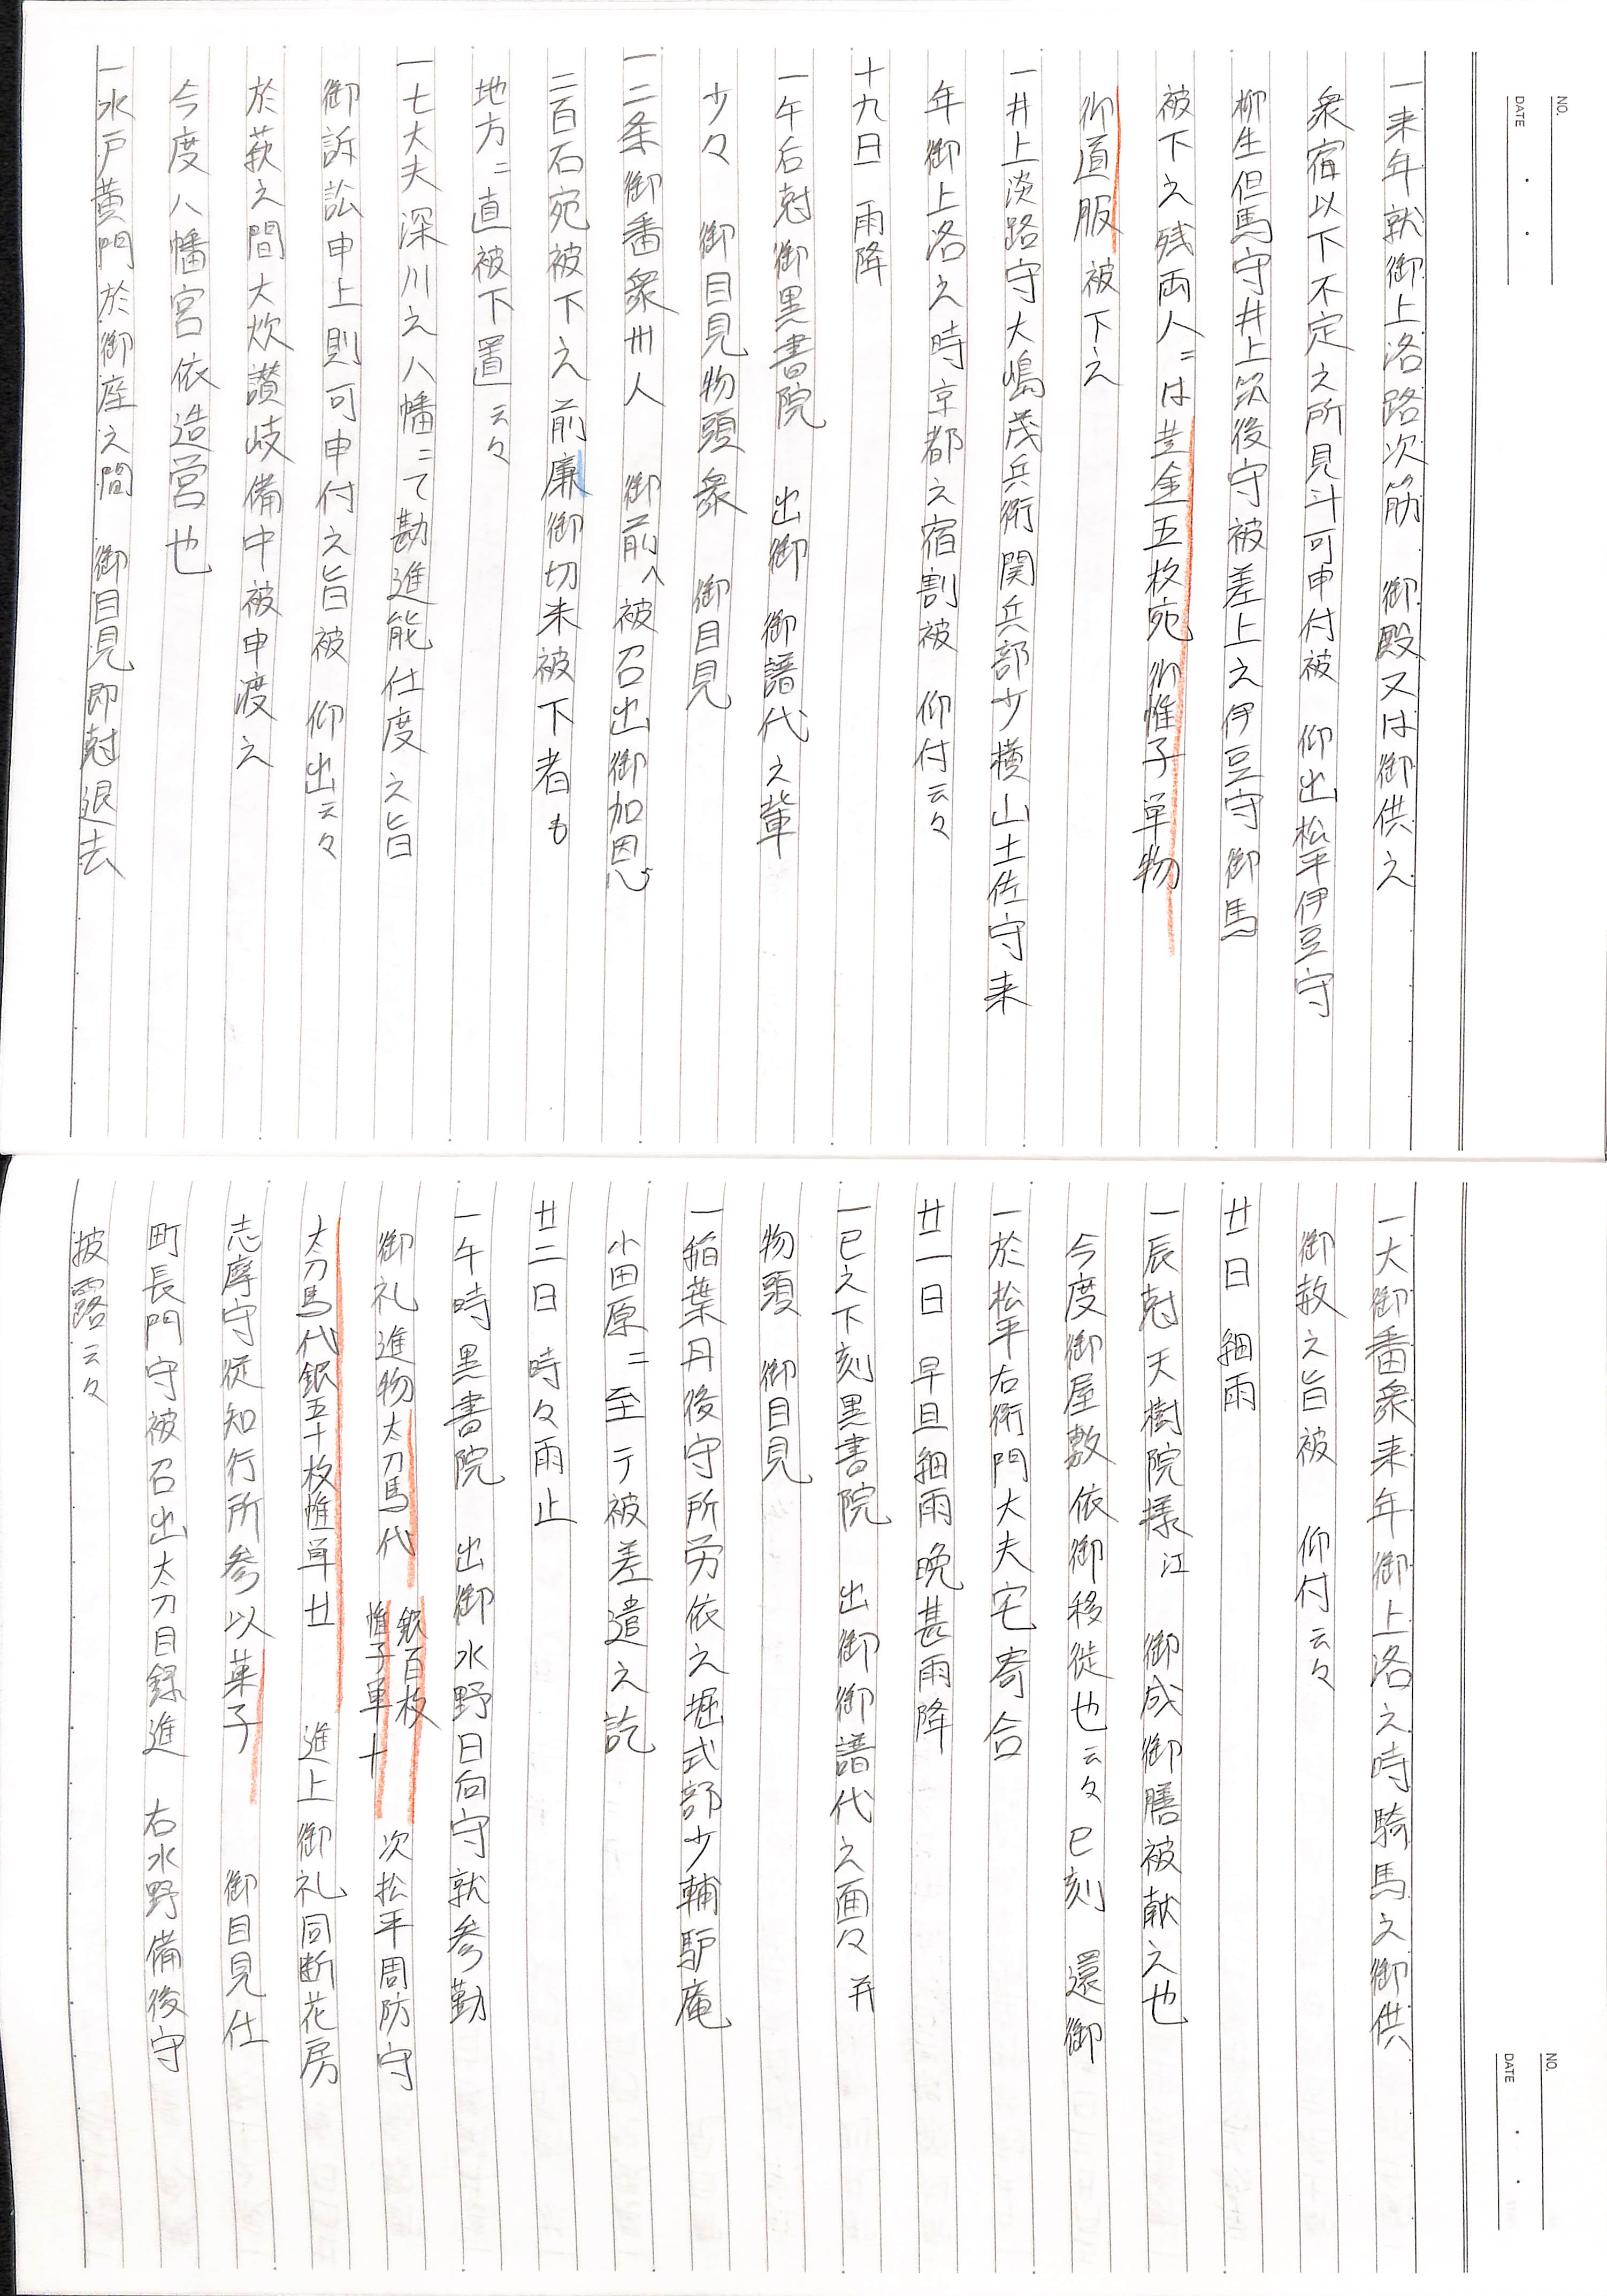 NO.
DATE
一来年就御上洛路次筋 御殿又は御供之
衆宿以下不定之所見斗可申付被 仰出松平伊豆守
柳生但馬守井上筑後守被差上之伊豆守 御馬
被下之残両人ニは 黄金五枚宛 御帷子単物
御道服 被下之
一井上淡路守大嶋茂兵衛関兵部少横山土佐守来
年御上洛之時京都之宿割被 仰付云々
十九日 雨降
一午后尅御黒書院 出御 御譜代之輩
少々 御目見物頭衆 御目見
一二条御番衆卅人 御前へ被召出御加恩
二百石宛被下之前廉御切米被下者も
地方ニ直被下置云々
一七大夫深川之八幡ニて勘進能仕度之旨
御訴訟申上則可申付之旨被 仰出云々
於萩之間大炊讃岐備中被申渡之
今度八幡宮依造営也
一水戸黄門於御座之間 御目見即尅退去
NO.
DATE
一大御番衆来年御上洛之時騎馬之御供
御赦之旨被 仰付云々
廿日 細雨
一辰尅天樹院様江 御成御膳被献之也
今度御屋敷依御移徙也云々巳刻 還御
一於松平右衛門大夫宅寄合
廿一日 早旦細雨晩甚雨降
一巳之下刻黒書院 出御御譜代之面々并
物頭 御目見
一稲葉丹後守所労依之堀式部少輔驢庵
小田原ニ至テ被差遣之訖
廿二日 時々雨止
一午時 黒書院 出御水野日向守就参勤
御礼進物太刀馬代 銀百枚 帷子単十 次松平周防守
太刀馬代銀五十枚帷単廿 進上御礼同断花房
志摩守従知行所参以菓子 御目見仕
町長門守被召出太刀目録進 右水野備後守
披露云々